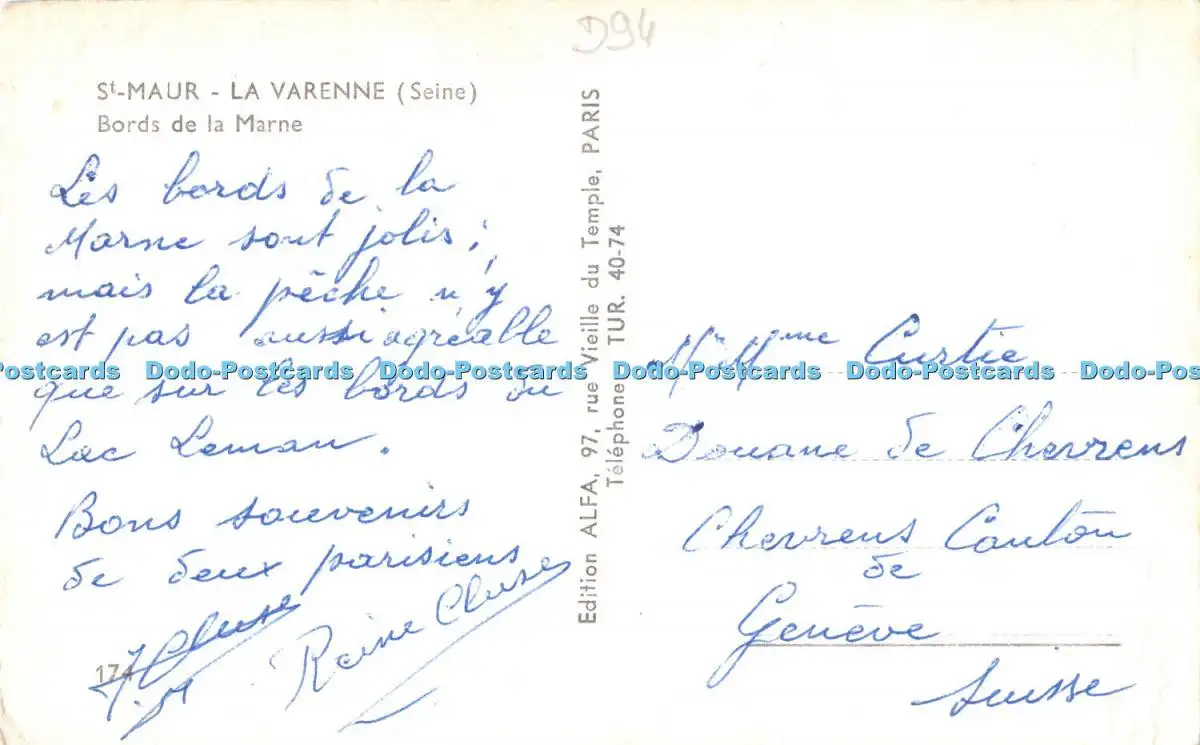 D94
St-MAUR - LA VARENNE (Seine)
Bords de la Marne
Les bords de la
Marne sont jolis ;
mais la pêche n'y
est pas aussi agréable
que sur les bords du
Lac Leman.
Bons souvenirs
de deux parisiens
Cluse
Reine Cluse
174
Edition ALFA, 97, rue Vieille du Temple, PARIS
Téléphone TUR. 40-74
M Mme Curtie
Douane de Chevrens
Chevrens Canton
de
Genève
Suisse
Dodo-Postcards Dodo-Postcards Dodo-Postcards Dodo-Postcards Dodo-Postcards Dodo-Postcards